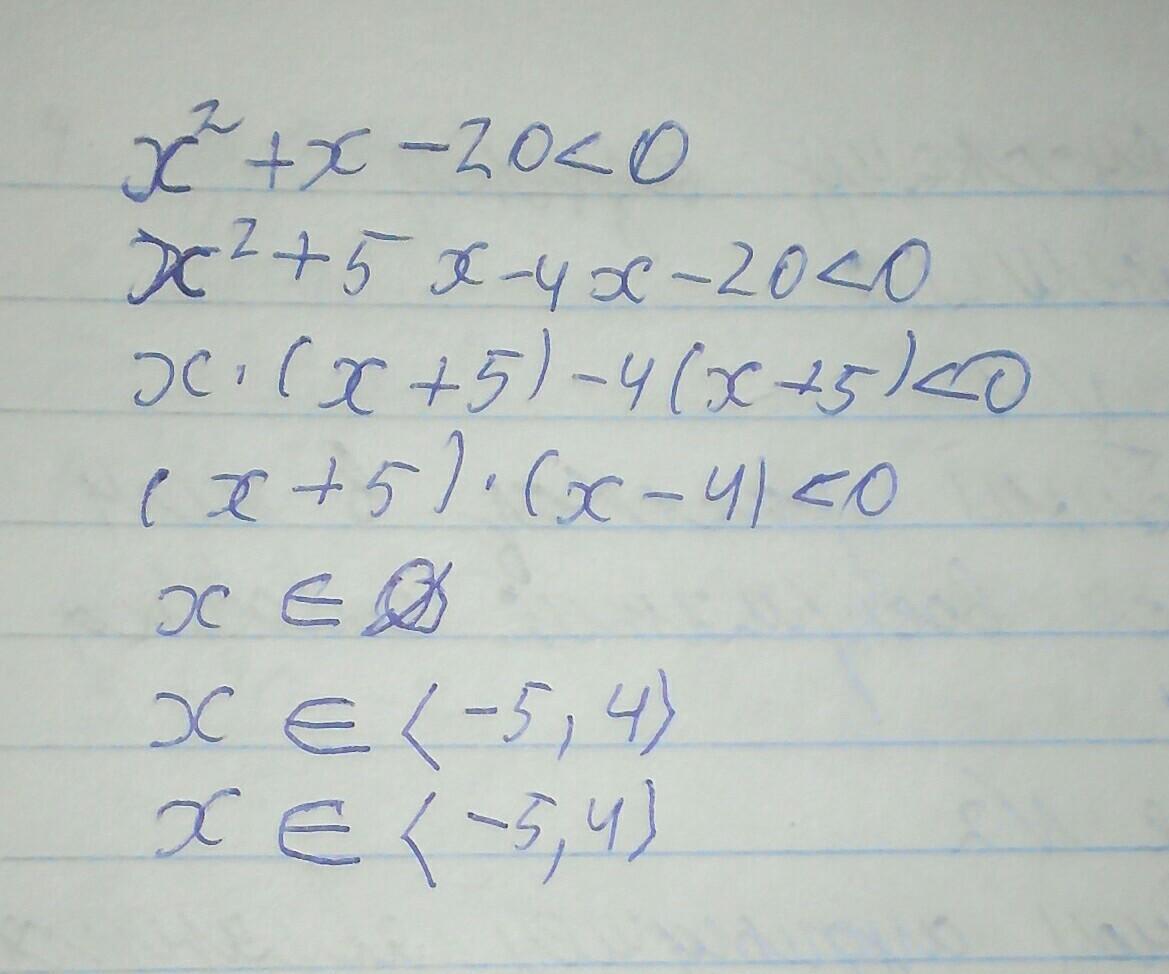 x² + x - 20 < 0
x² + 5x - 4x - 20 < 0
x · (x + 5) - 4(x + 5) < 0
(x + 5) · (x - 4) < 0
x ∈
x ∈ ⟨-5, 4⟩
x ∈ ⟨-5, 4⟩